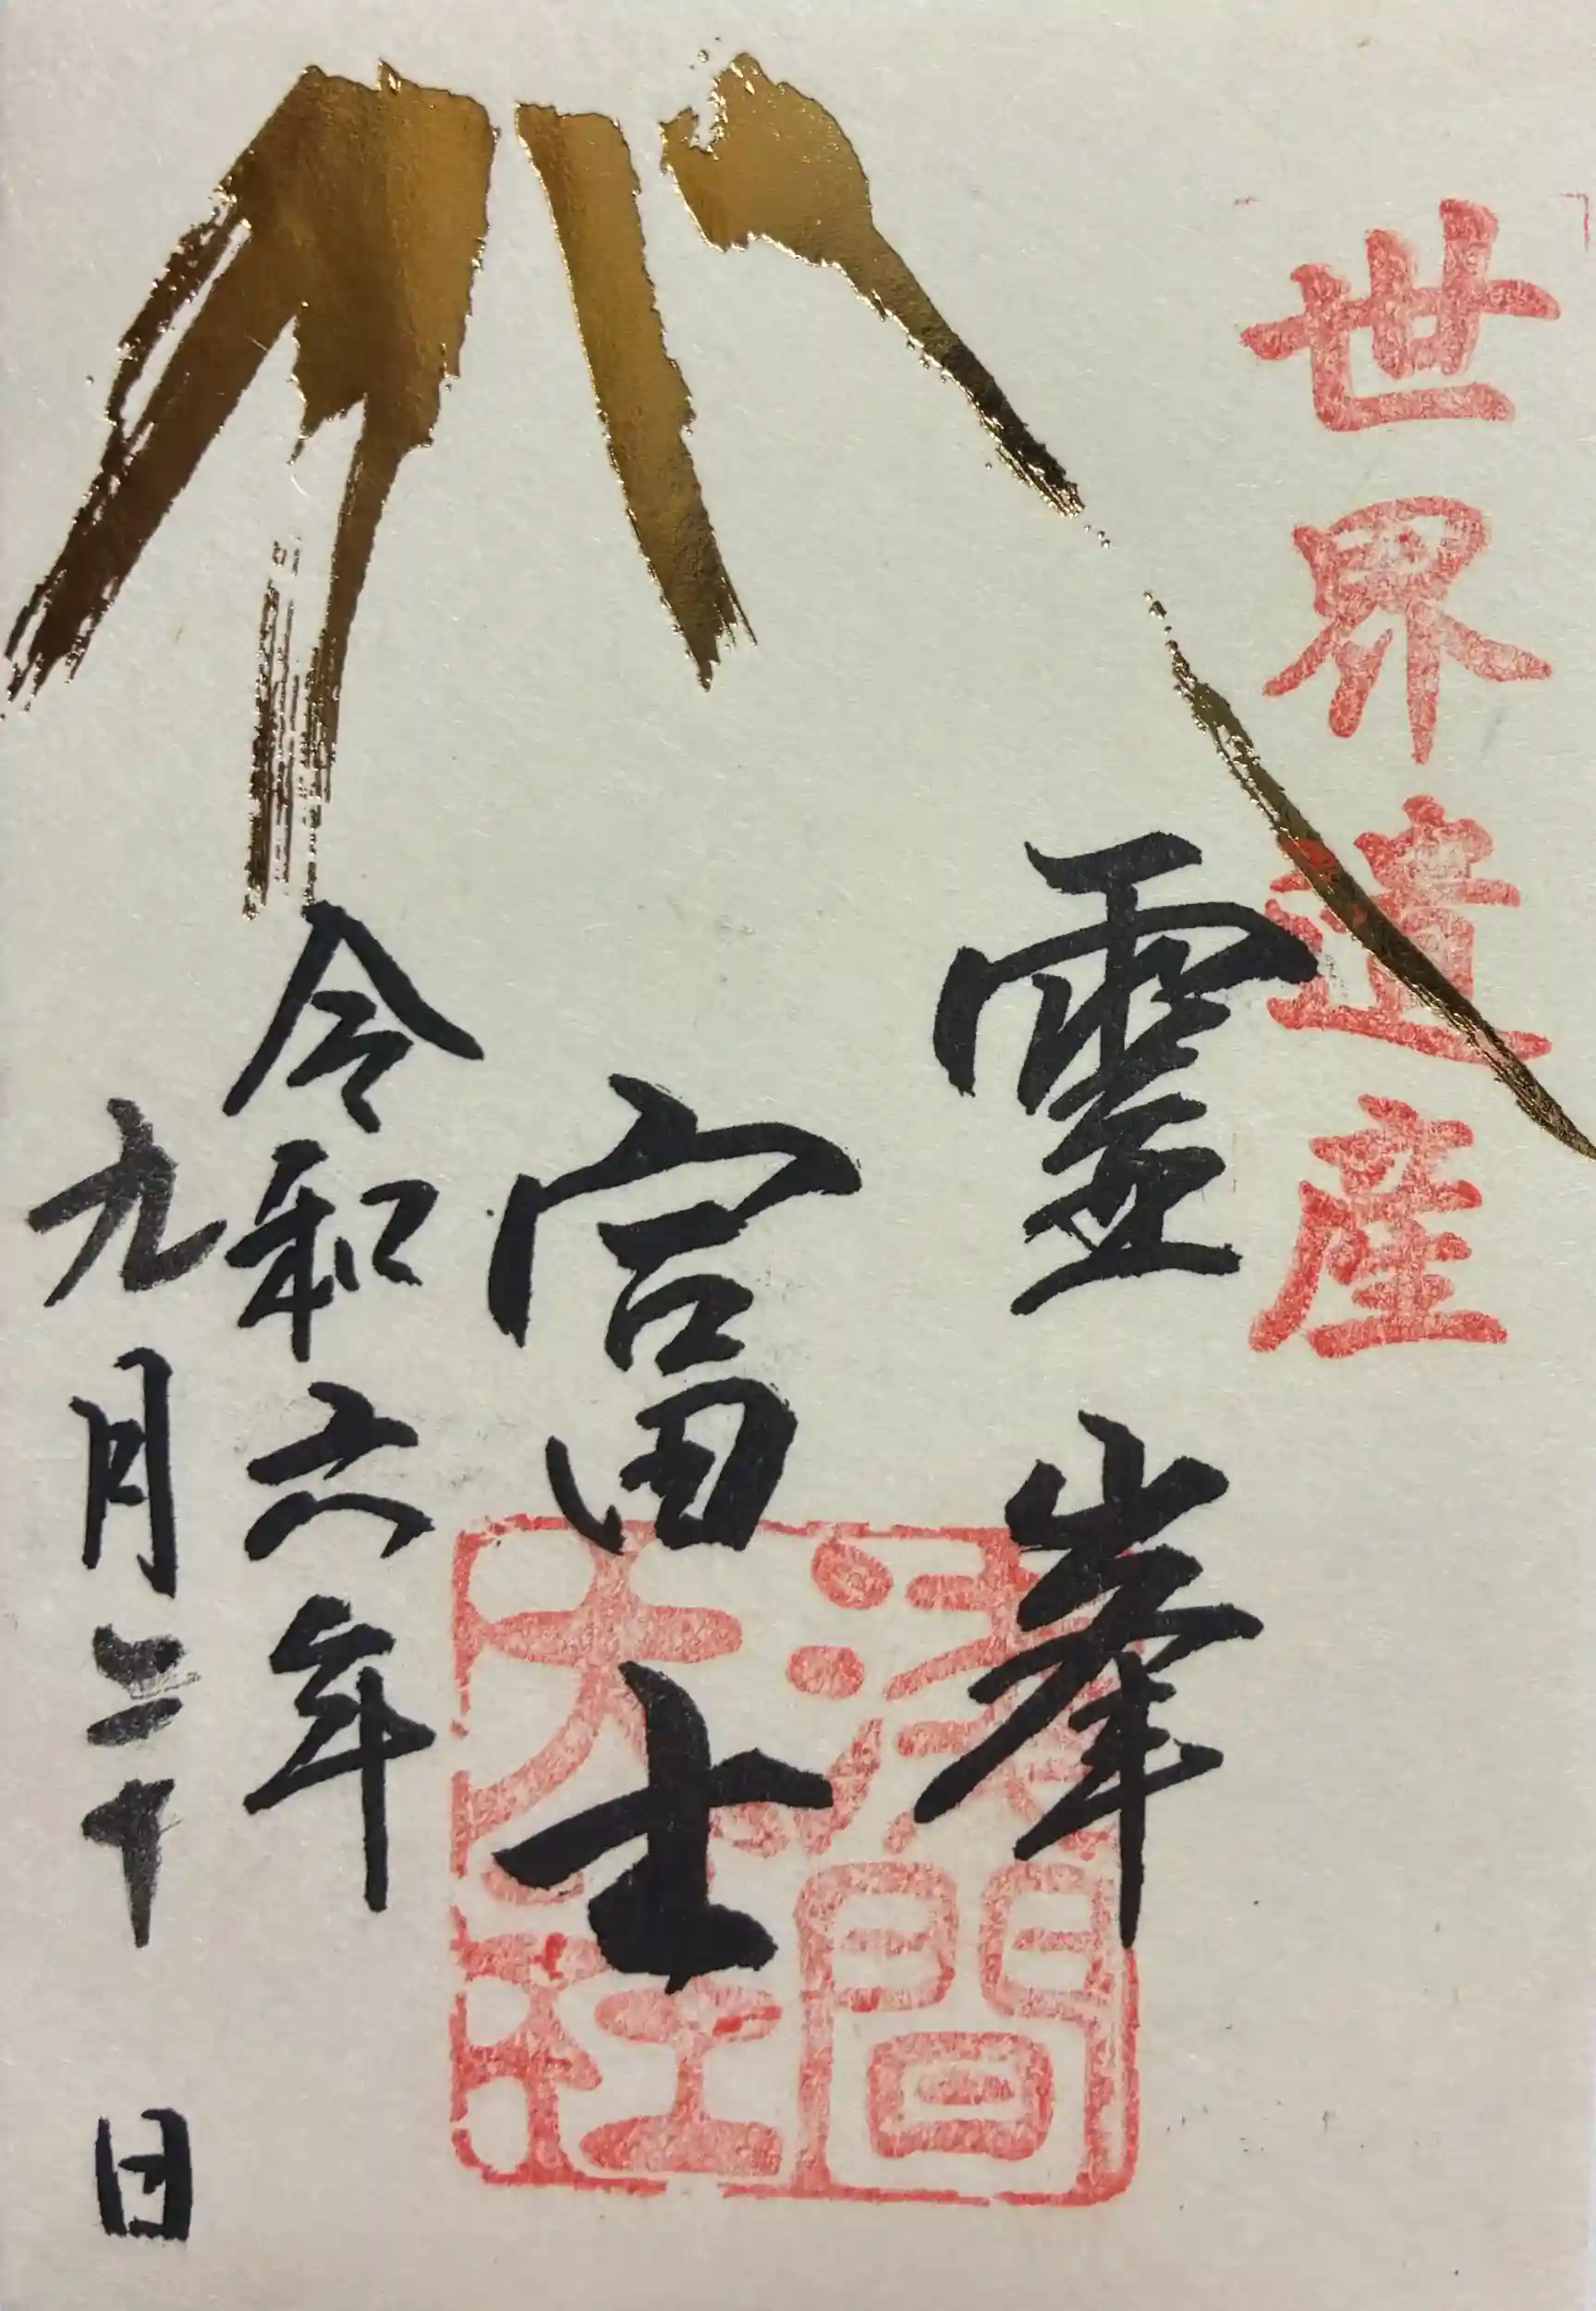 世界遺産
靈峯
富士
淺間大社
令和六年
九月二十日